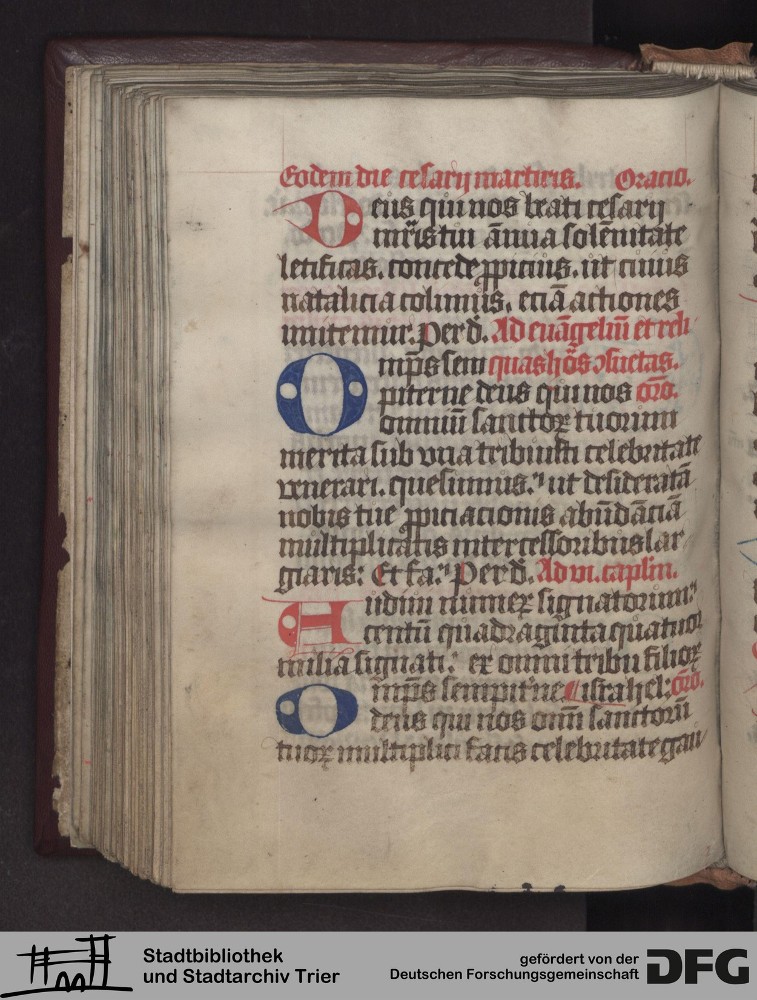 Eodem die cesarij martiris. Oracio.
Deus qui nos beati cesarij
mr̄is tui ānua solēnitate
letificas. concede ꝓpicius. ut cuius
natalicia colimus. eciā actiones
imitemur. Per d̄. Ad euāgeliū et reli
Omp̄s sem quas hōs ↄsuetas.
piterne deus qui nos orō.
omniū sanctoꝝ tuorum
merita sub vna tribuisti celebritate
venerari. quesumus. ut desideratā
nobis tue ꝓpiciacionis abūdāciā
multiplicatis intercessoribus lar
giaris: Et fa. Per d̄. Ad vi. caplm.
Audiui numeꝝ signatorum
centū quadraginta quatuor
milia signati. ex omni tribu filioꝝ
Omp̄s sempit'ne israhel: orō.
deus qui nos oīm sanctorū
tuoꝝ multiplici facis celebritate gau
Stadtbibliothek
und Stadtarchiv Trier
gefördert von der
Deutschen Forschungsgemeinschaft
DFG